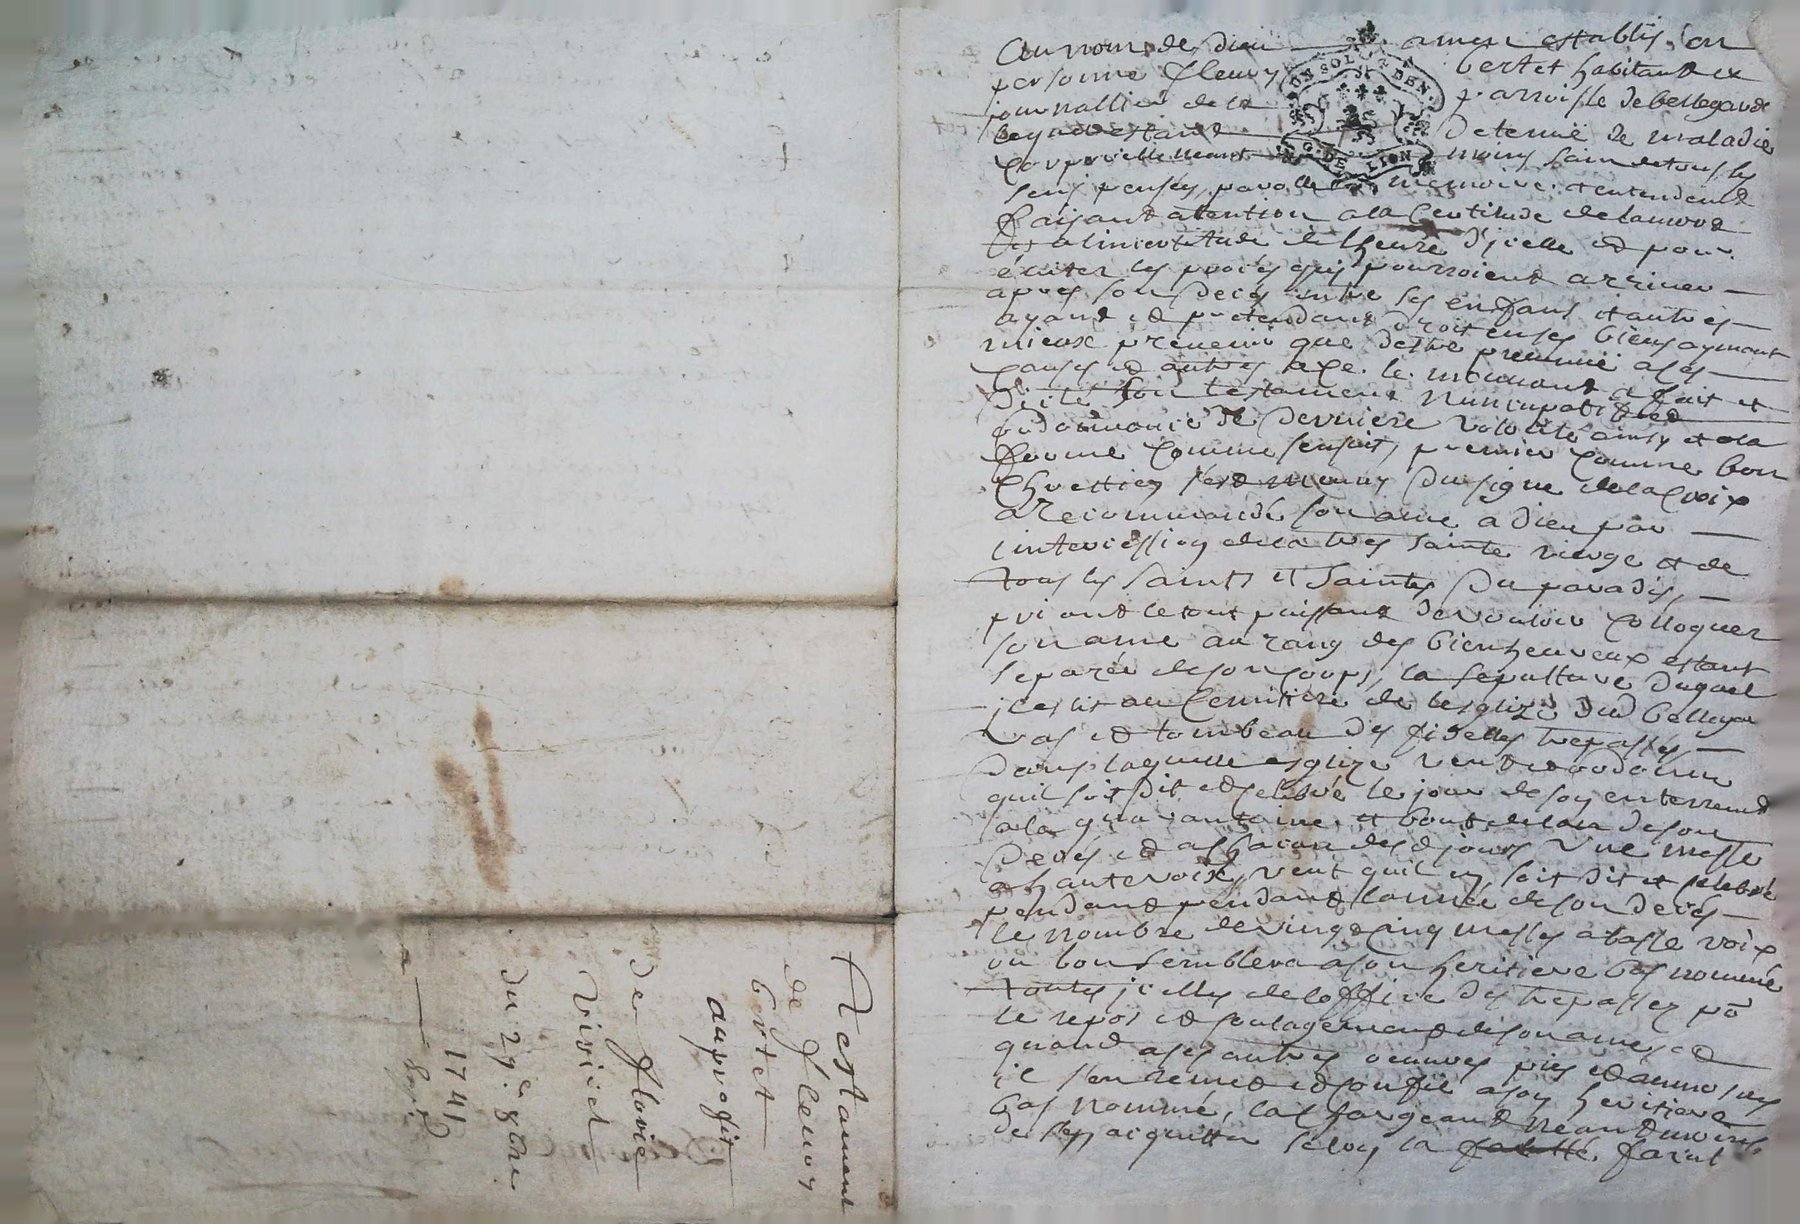 Au nom de dieu amen establis en
personne fleury bertet habitant et
journallier de la parroisse de bellegarde
lequel estant detenüe de maladie
corporelle neant moins sain de tous ses
sens pensées parolle memoire et entendem̃t
faisant atention a la certitude de la mort
et a lincertitude de lheure d'icelle et pour
éviter les procés quis pourroient arriver
apres son deces entre ses enfans et autres
ayant et pretendant droit en ses biens aymant
mieux prevenir que destre prevenüe a ces
causes et autres a ce le mouvant a fait et
dicté son testament nuncupatif et
ordonnance de derniere volonté ainsy et a la
forme comme sensuit, premier comme bon
Chrettien sest muny du signe de la Croix
a recommandé son ame a dieu par
lintercession de la tres sainte vierge et de
tous les saints et saintes du paradis,
priant le tout puissant de vouloir colloquer
son ame au rang des bienheureux estant
separée de son corps, la sepulture duquel
il eslit au Cemitiere de lesglize dud bellegar
vas et tombeau des fidelles trepassés,
dans laquelle esglize veut et ordonne
quil soit dit et celebré le jour de son enterrement
a la quarantaine et bout de lan de son
deces et a chacun desd jours une messe
a haute voix, veut quil en soit dit et celebré
pendant pendant lannée de son deces
le nombre de vingt cinq messes a basse voix
ou bon semblera a son heritiere bas nommée
toutes icelles de loffice des trepassez po
le repos et soulagement de son ame, et
quand a ses autres oeuvres pies et aumosnes
il s'en remet et confie a son heritiere
bas nommé, la chargeant neantmoins
de s'en acquitter selon la faculté, farat
G. DE LION
Testament
de fleury
bertet
au profit
de florie
Viviet
du 29.e 8bre
1741